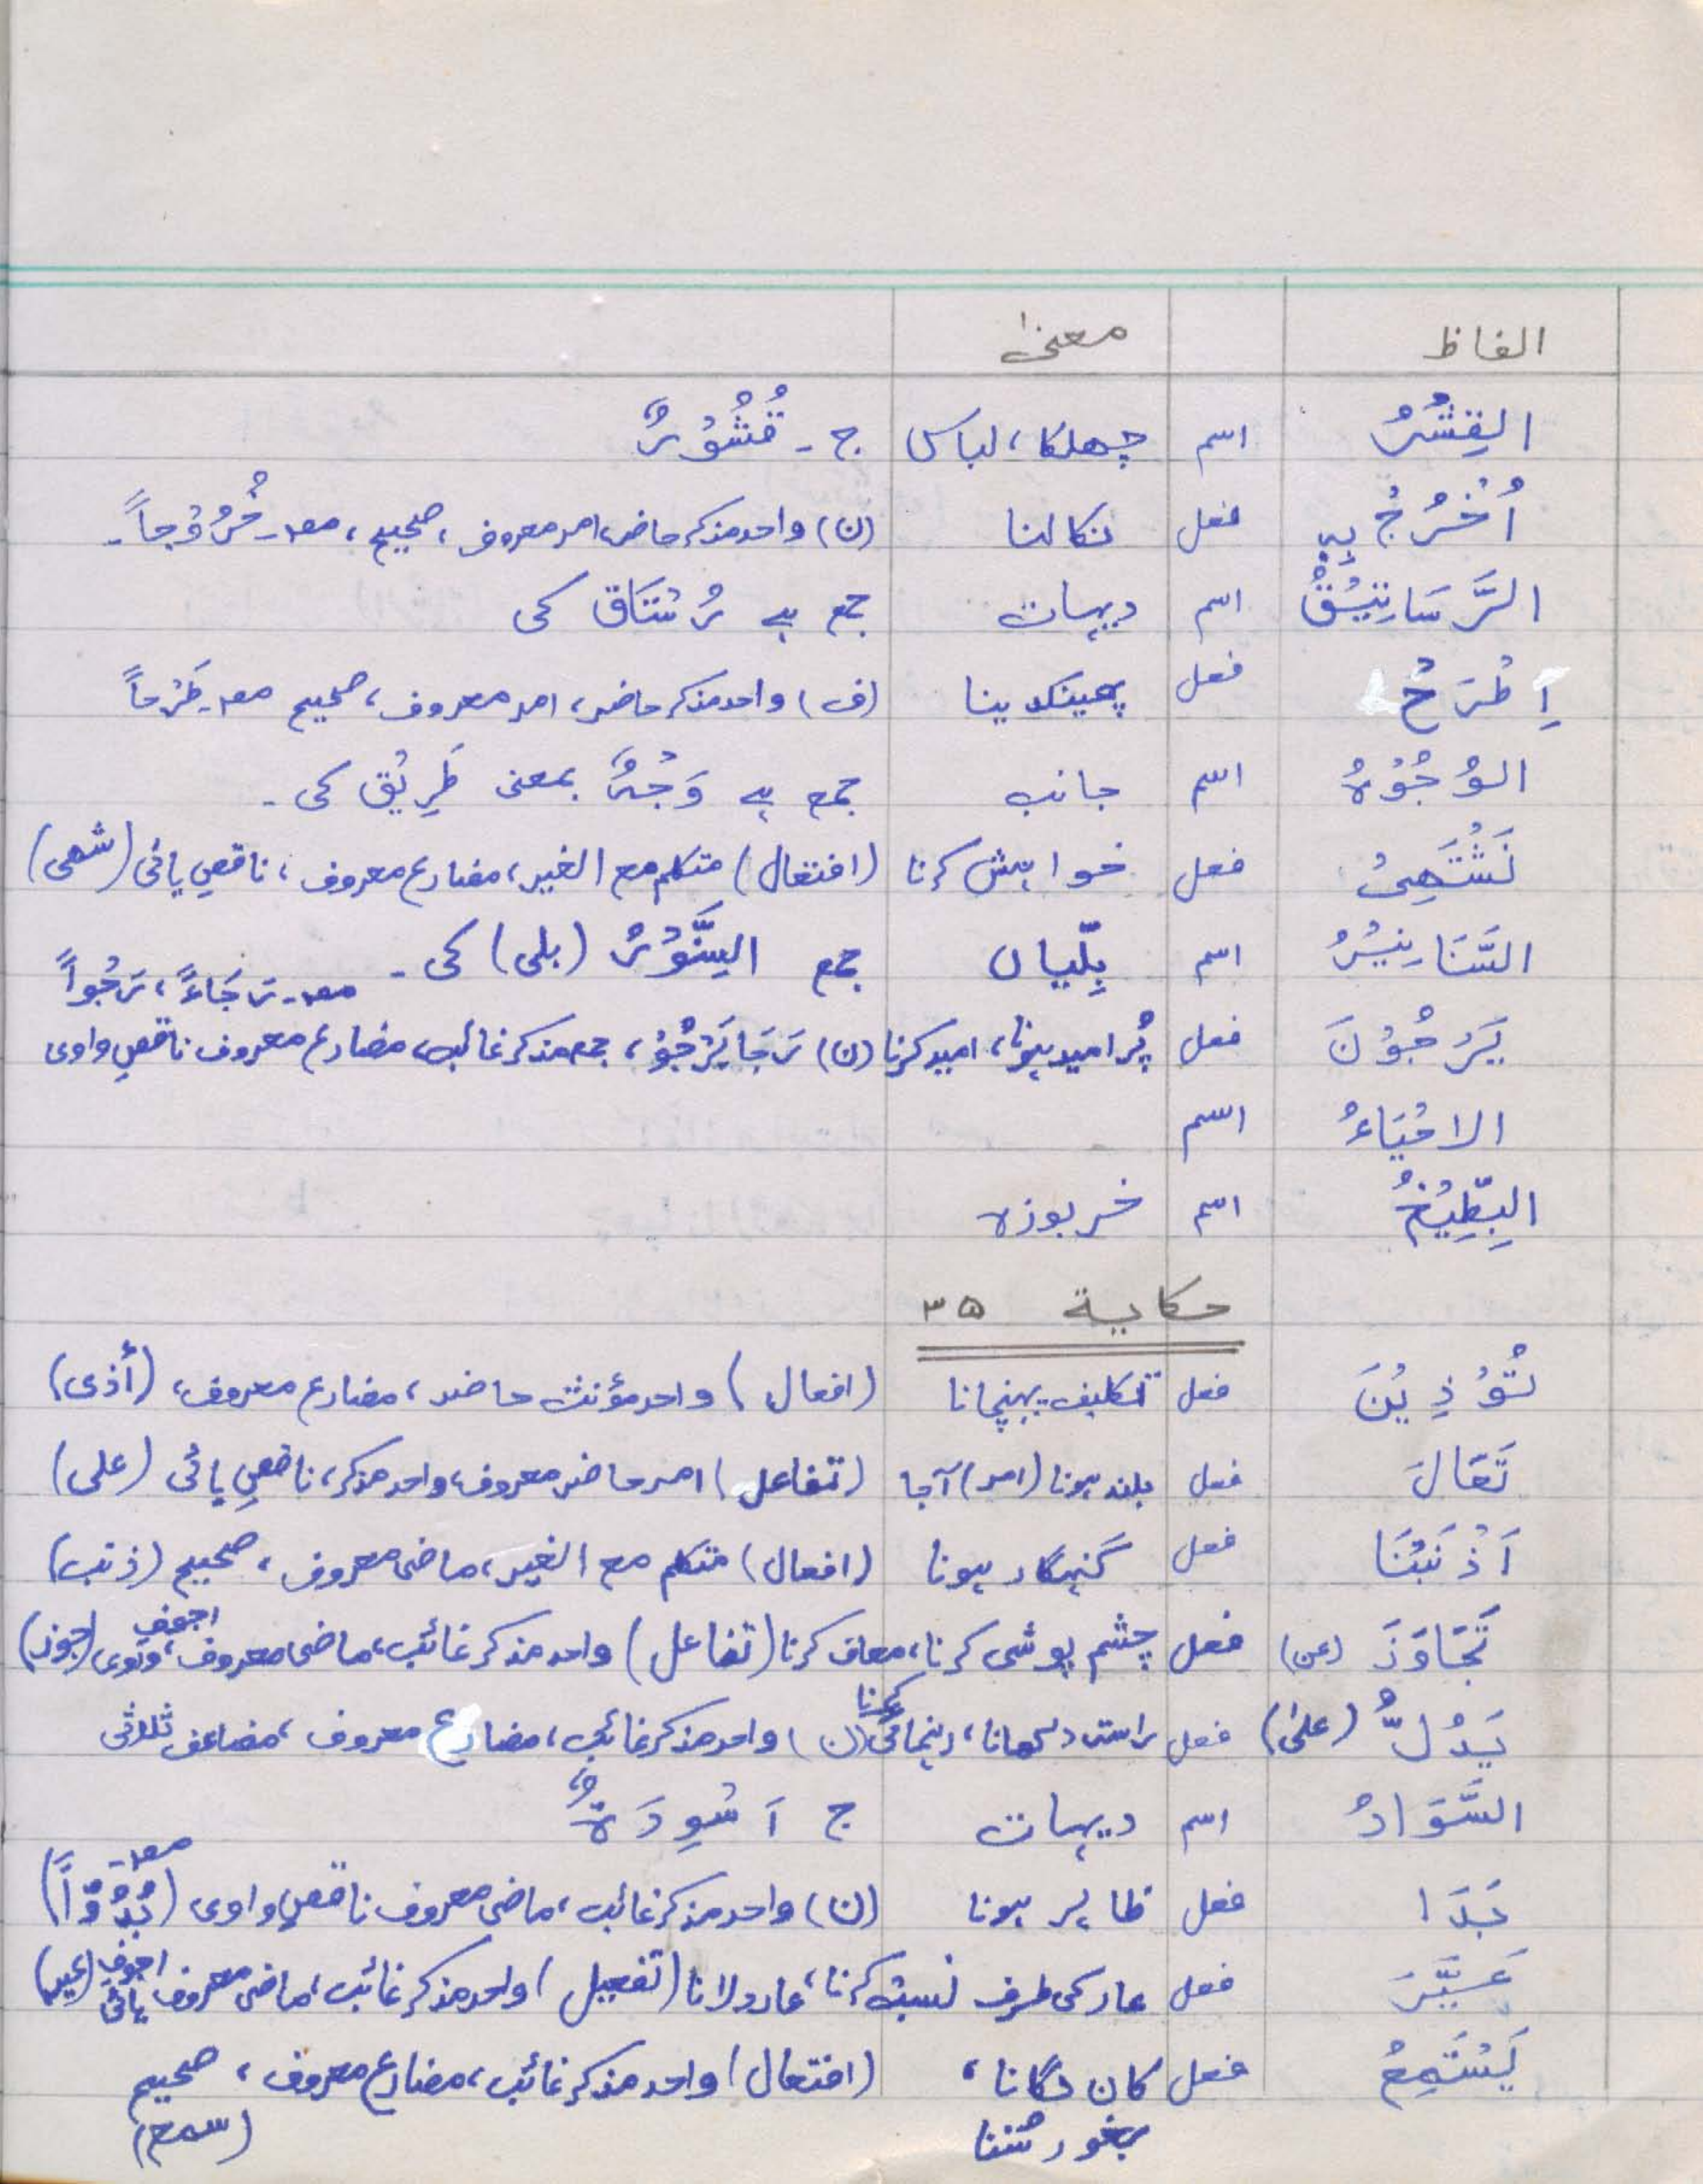 الفاظ معنیٰ
القِشْرُ اسم چھلکا، لباس ج ۔ قُشُوْرٌ
اُخْرُجْ بِهٖ فعل نکالنا (ن) واحد مذکر حاضر، امر معروف، صحیح، مصدر خُرُوْجاً۔
الرَّسَاتِيْقُ اسم دیہات جمع ہے رُسْتَاق کی
اِطْرَحْ فعل پھینک دینا (ف) واحد مذکر حاضر، امر معروف، صحیح مصدر طَرْحاً
الوُجُوْهُ اسم جانب جمع ہے وَجْهٌ بمعنی طَرِيْق کی ۔
نَشْتَهِیْ فعل خواہش کرنا (افتعال) متکلم مع الغیر، مضارع معروف، ناقص یائی (شھی)
السَّنَانِيْرُ اسم بِلّیاں جمع السِنَّوْرُ (بلی) کی ۔
مصدر رَجَاءً، رَجُواً
يَرْجُوْنَ فعل پُر امید ہونا، امید کرنا (ن) رَجَا يَرْجُوْ، جمع مذکر غائب، مضارع معروف ناقص واوی
الاحْيَاءُ اسم
البِطِّيْخُ اسم خربوزہ
حکایة ۳۵
تُؤْذِيْنَ فعل تکلیف پہنچانا (افعال) واحد مؤنث حاضر، مضارع معروف، (أذی)
تَعَالَ فعل بلند ہونا (امر) آجا (تفاعل) امر حاضر معروف، واحد مذکر، ناقص یائی (علی)
اَذْنَبْنَا فعل گنہگار ہونا (افعال) متکلم مع الغیر، ماضی معروف، صحیح (ذنب)
تَجَاوَزَ (عن) فعل چشم پوشی کرنا، معاف کرنا (تفاعل) واحد مذکر غائب، ماضی معروف، اجوف واوی (جوز)
يَدُلُّ (علیٰ) فعل راستہ دکھانا، رہنمائی کرنا (ن) واحد مذکر غائب، مضارع معروف، مضاعف ثلاثی
السَّوَادُ اسم دیہات ج اَسْوِدَةٌ
بَدَا فعل ظاہر ہونا (ن) واحد مذکر غائب، ماضی معروف ناقص واوی مصدر (بُدُوّاً)
عَيَّرَ فعل عار کی طرف نسبت کرنا، عار دلانا (تفعیل) واحد مذکر غائب، ماضی معروف اجوف یائی (عیر)
يَسْتَمِعُ فعل کان لگانا، (افتعال) واحد مذکر غائب، مضارع معروف، صحیح
بغور سننا (سمع)